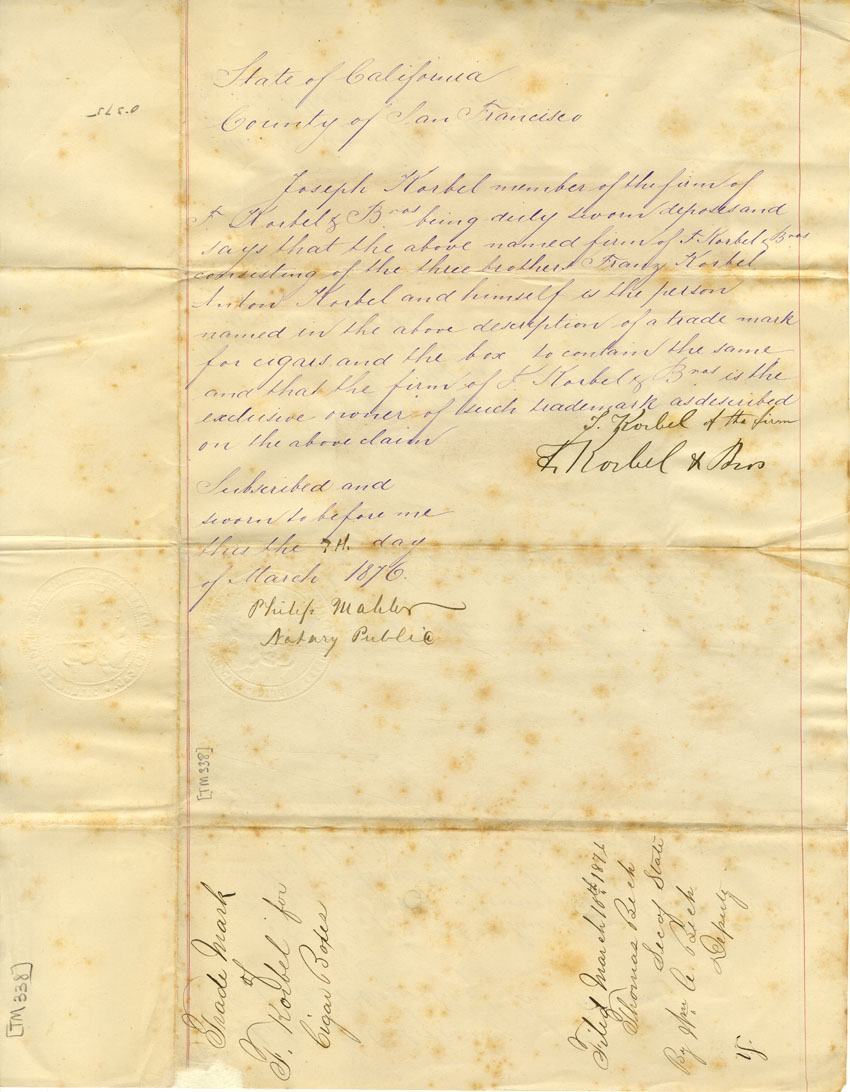 State of California
County of San Francisco
Joseph Korbel member of the firm of
F. Korbel & Bros being duly sworn deposes and
says that the above named firm of F. Korbel & Bros
consisting of the three brothers Franz Korbel
Anton Korbel and himself is the person
named in the above description of a trade mark
for cigars and the box to contain the same
and that the firm of F. Korbel & Bros is the
exclusive owner of such trademark as described
on the above claim
J. Korbel of the firm
F. Korbel & Bros
Subscribed and
sworn to before me
this the 7th day
of March 1876.
Philip Mahler
Notary Public
[TM 338]
Trade Mark
of
F. Korbel for
Cigar Boxes
Filed March 10th 1876
Thomas Beck
Sec of State
By Wm. C. Beck
Deputy
[TM 338]